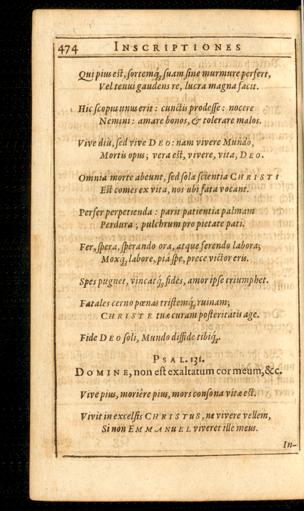 474 INSCRIPTIONES
Qui pius est, sortemq́; suam sine murmure perfert,
Vel tenui gaudens re, lucra magna facit.
Hic scopus unus erit: cunctis prodesse: nocere
Nemini: amare bonos, & tolerare malos.
Vive diu, sed vive DEO: nam vivere Mundo,
Mortis opus; vera est, vivere, vita, DEO.
Omnia morte abeunt, sed sola scientia CHRISTI
Est comes ex vita, nos ubi fata vocant.
Perfer perpetienda: parit patientia palmam
Perdura, pulchrum pro pietate pati.
Fer, spera, sperando ora, atque ferendo labora;
Moxq́; labore, pia spe, prece victor eris.
Spes pugnet, vincatq́; fides, amor ipse triumphet.
Fatales cerno pœnas tristemq́; ruinam;
CHRISTE tua curam posteritatis age.
Fide DEO soli, Mundo diffide tibiq́;.
PSAL. 131.
DOMINE, non est exaltatum cor meum, &c.
Vive pius, moriêre pius, mors consona vitæ est.
Vivit in excelsis CHRISTUS, ne vivere vellem,
Si non EMMANUEL viveret ille meus.
In-